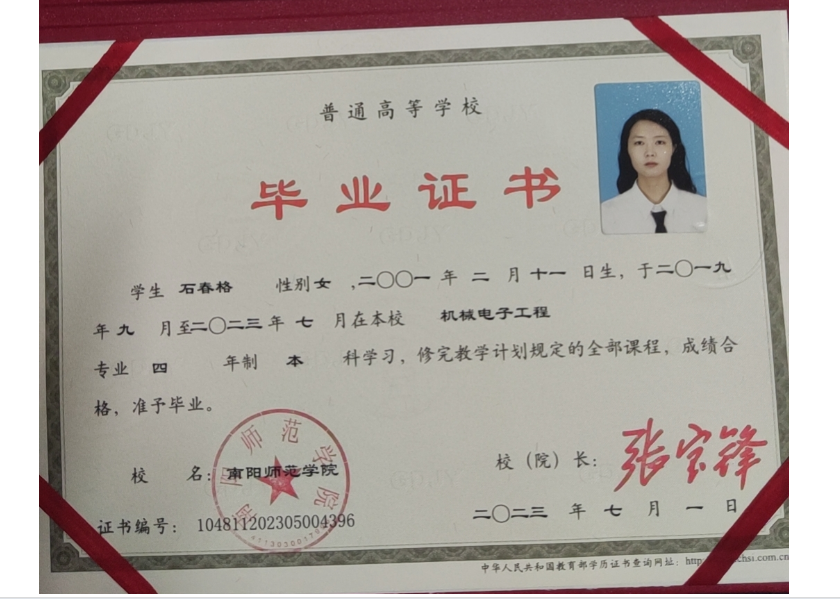 普通高等学校
毕业证书
学生 石春格 性别 女 ,二〇〇一 年 二 月 十一 日生, 于二〇一九
年 九 月至二〇二三 年 七 月在本校 机械电子工程
专业 四 年制 本 科学习, 修完教学计划规定的全部课程, 成绩合
格, 准予毕业。
校 名: 南阳师范学院
南阳师范学院
校 (院) 长: 张宝锋
证书编号: 104811202305004396
二〇二三 年 七 月 一 日
中华人民共和国教育部学历证书查询网址: http
chsi.com.cn